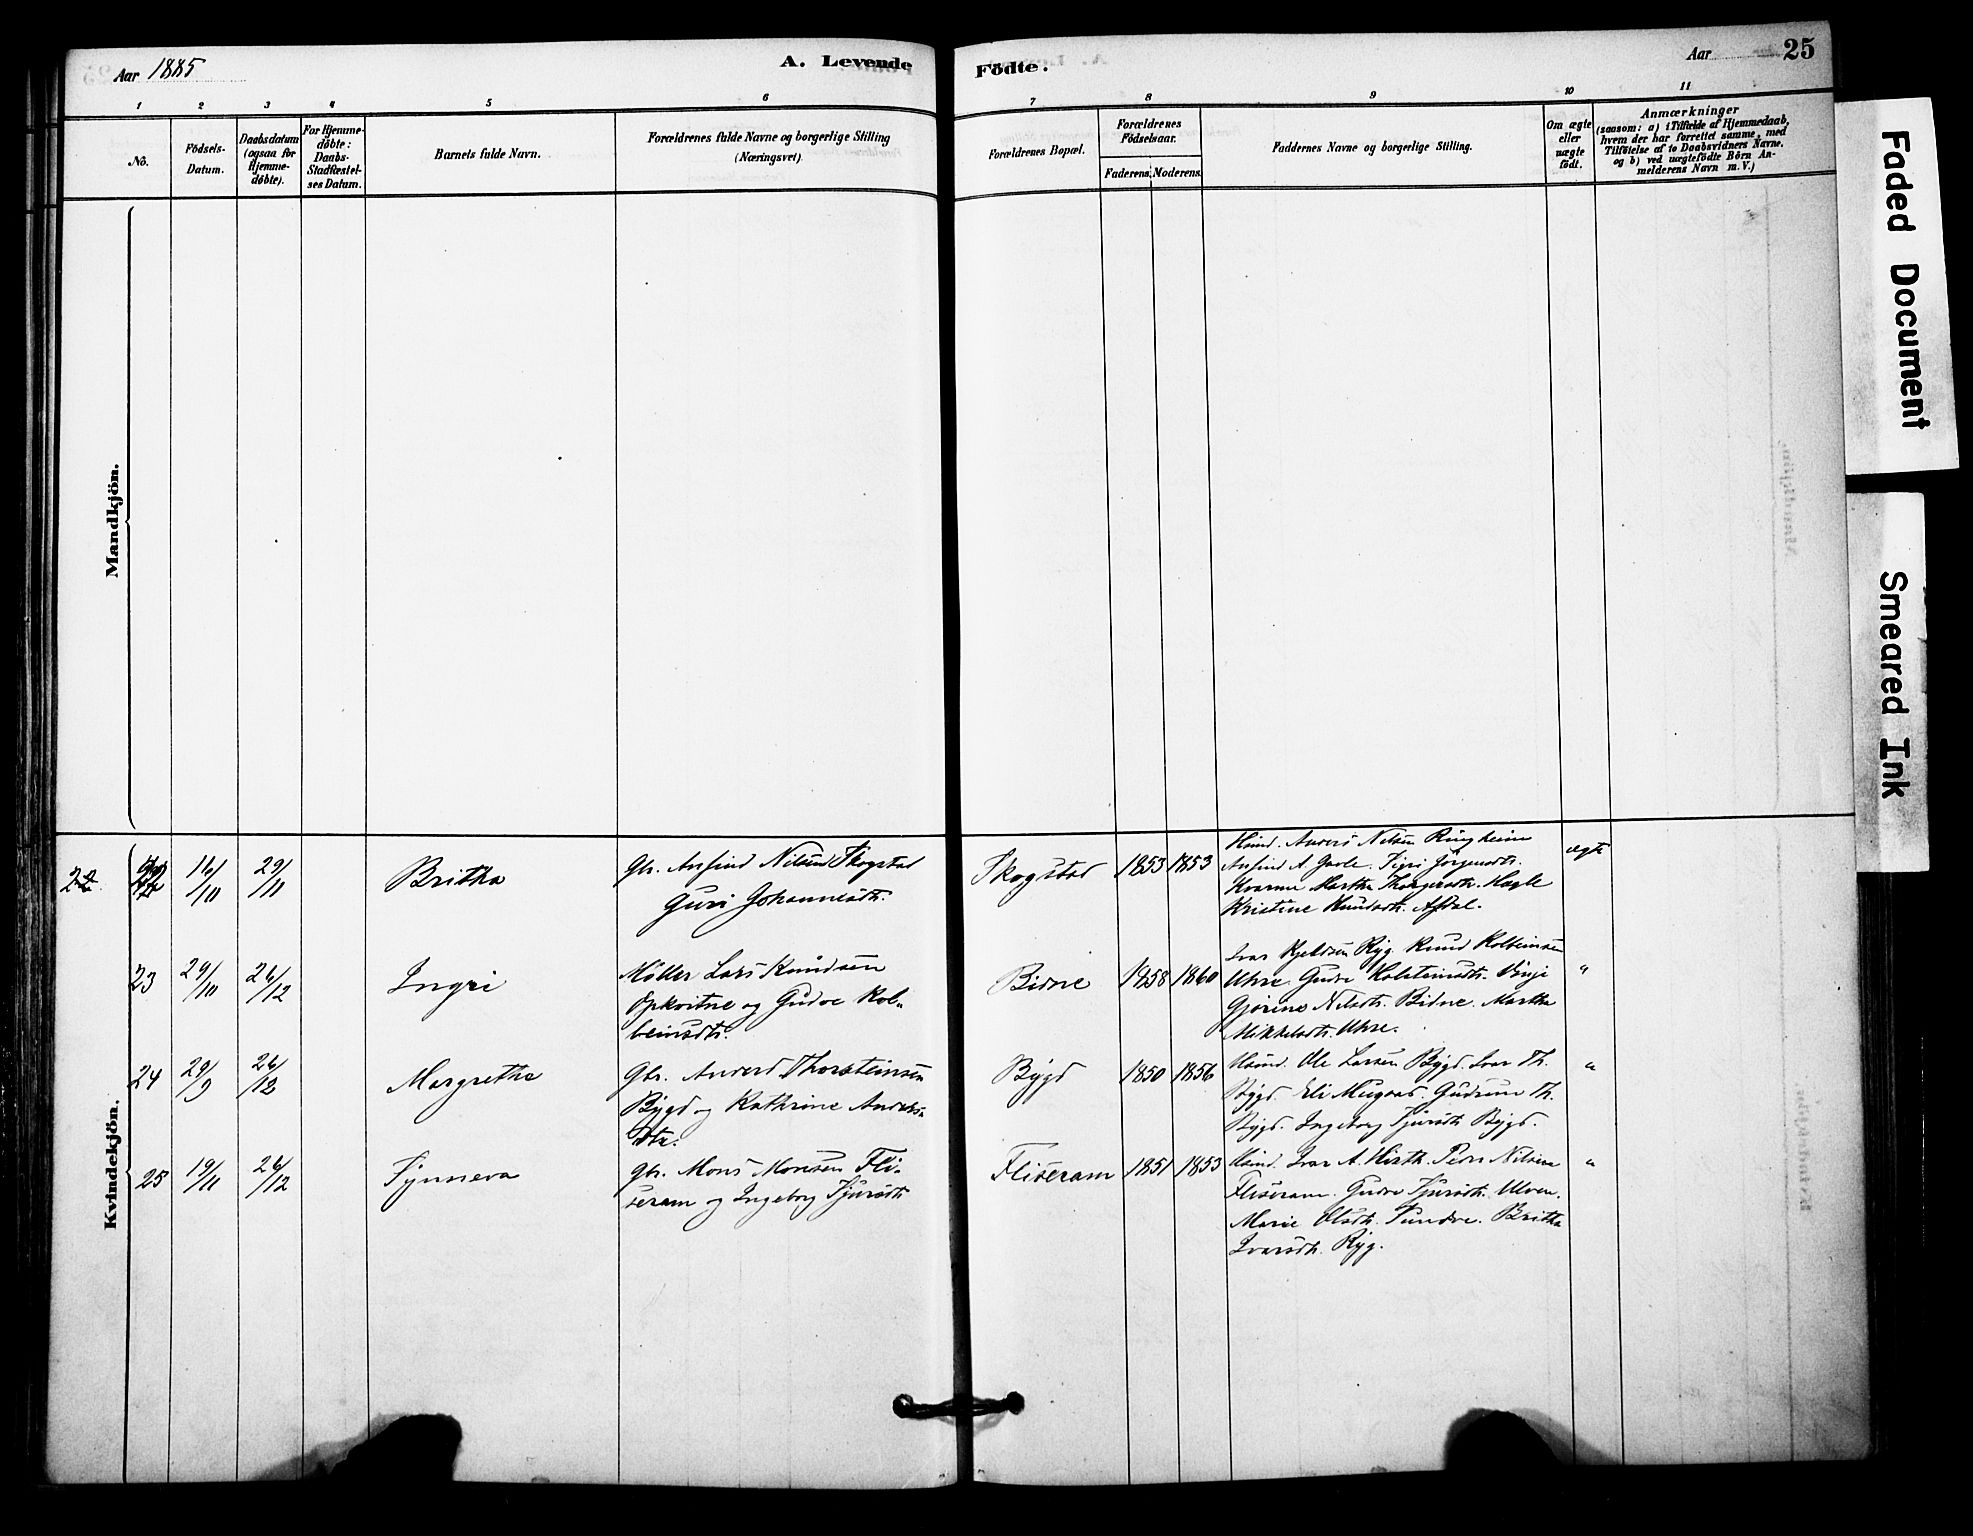 Aar 1885
A. Levende
Födte.
Aar 25
1 2 3 4 5 6 7 8 9 10 11
Nô.
Födsels-
Datum.
Daabsdatum
(ogsaa for
Hjemme-
döbte).
For Hjemme-
döbte:
Daabs-
Stadfæstel-
ses Datum.
Barnets fulde Navn.
Forældrenes fulde Navne og borgerlige Stilling
(Næringsvei)
Forældrenes Bopæl.
Forældrenes
Födselsaar.
Faderens. Moderens.
Faddernes Navne og borgerlige Stilling.
Om ægte
eller
uægte
födt.
Anmærkninger
(saasom: a) i Tilfælde af Hjemmedaab,
hvem der har forrettet samme, med
Tilföielse af to Daabsvidners Navne,
og b) ved uægtefödte Börn An-
melderens Navn m.V.)
Mandkjön.
Kvindekjön.
22 16/10 29/11 Britha
Gbr. Anfind Nilsen Skogstad
Guri Johannesdtr.
Skogstad 1853 1853
Huusmd. Anders Nilsen Ringheim
Anfind A. Gavle. Sigri Jörgensdtr.
Kvarme Martha Thorgersdtr. Hagle
Kristine Knudsdtr. Afdal.
ægte
23 29/10 26/12 Ingri
Møller Lars Knudsen
Opkvitne og Gudve Kol-
beinsdtr.
Bidne 1858 1860
Ivar Kjeldsen Ryg Knud Kolbeinsen
Uhre. Gudve Holsteinsdtr. Vinje
Gjörine Nilsdtr. Bidne. Martha
Mikkelsdtr. Uhre.
"
24 29/9 26/12 Margrethe
Gbr. Anders Thorsteinsen
Bygd og Kathrine Anders-
dtr.
Bygd 1850 1856
Ole Larsen Bygd. Ivar Th.
Bygd. Eli Mugaas. Gudrun Th.
Bygd. Ingeborg Sjursdtr. Bygd.
"
25 19/11 26/12 Synneva
Gbr. Mons Monsen Fli-
seram og Ingeborg Sjursdtr.
Fliseram 1851 1853
Ivar A. Hirth. Peder Nilsen
Fliseram. Gudve Sjursdtr. Ulven.
Marie Olsdtr. Sundve. Britha
Ivarsdtr. Ryg.
"
Faded Document
Smeared Ink